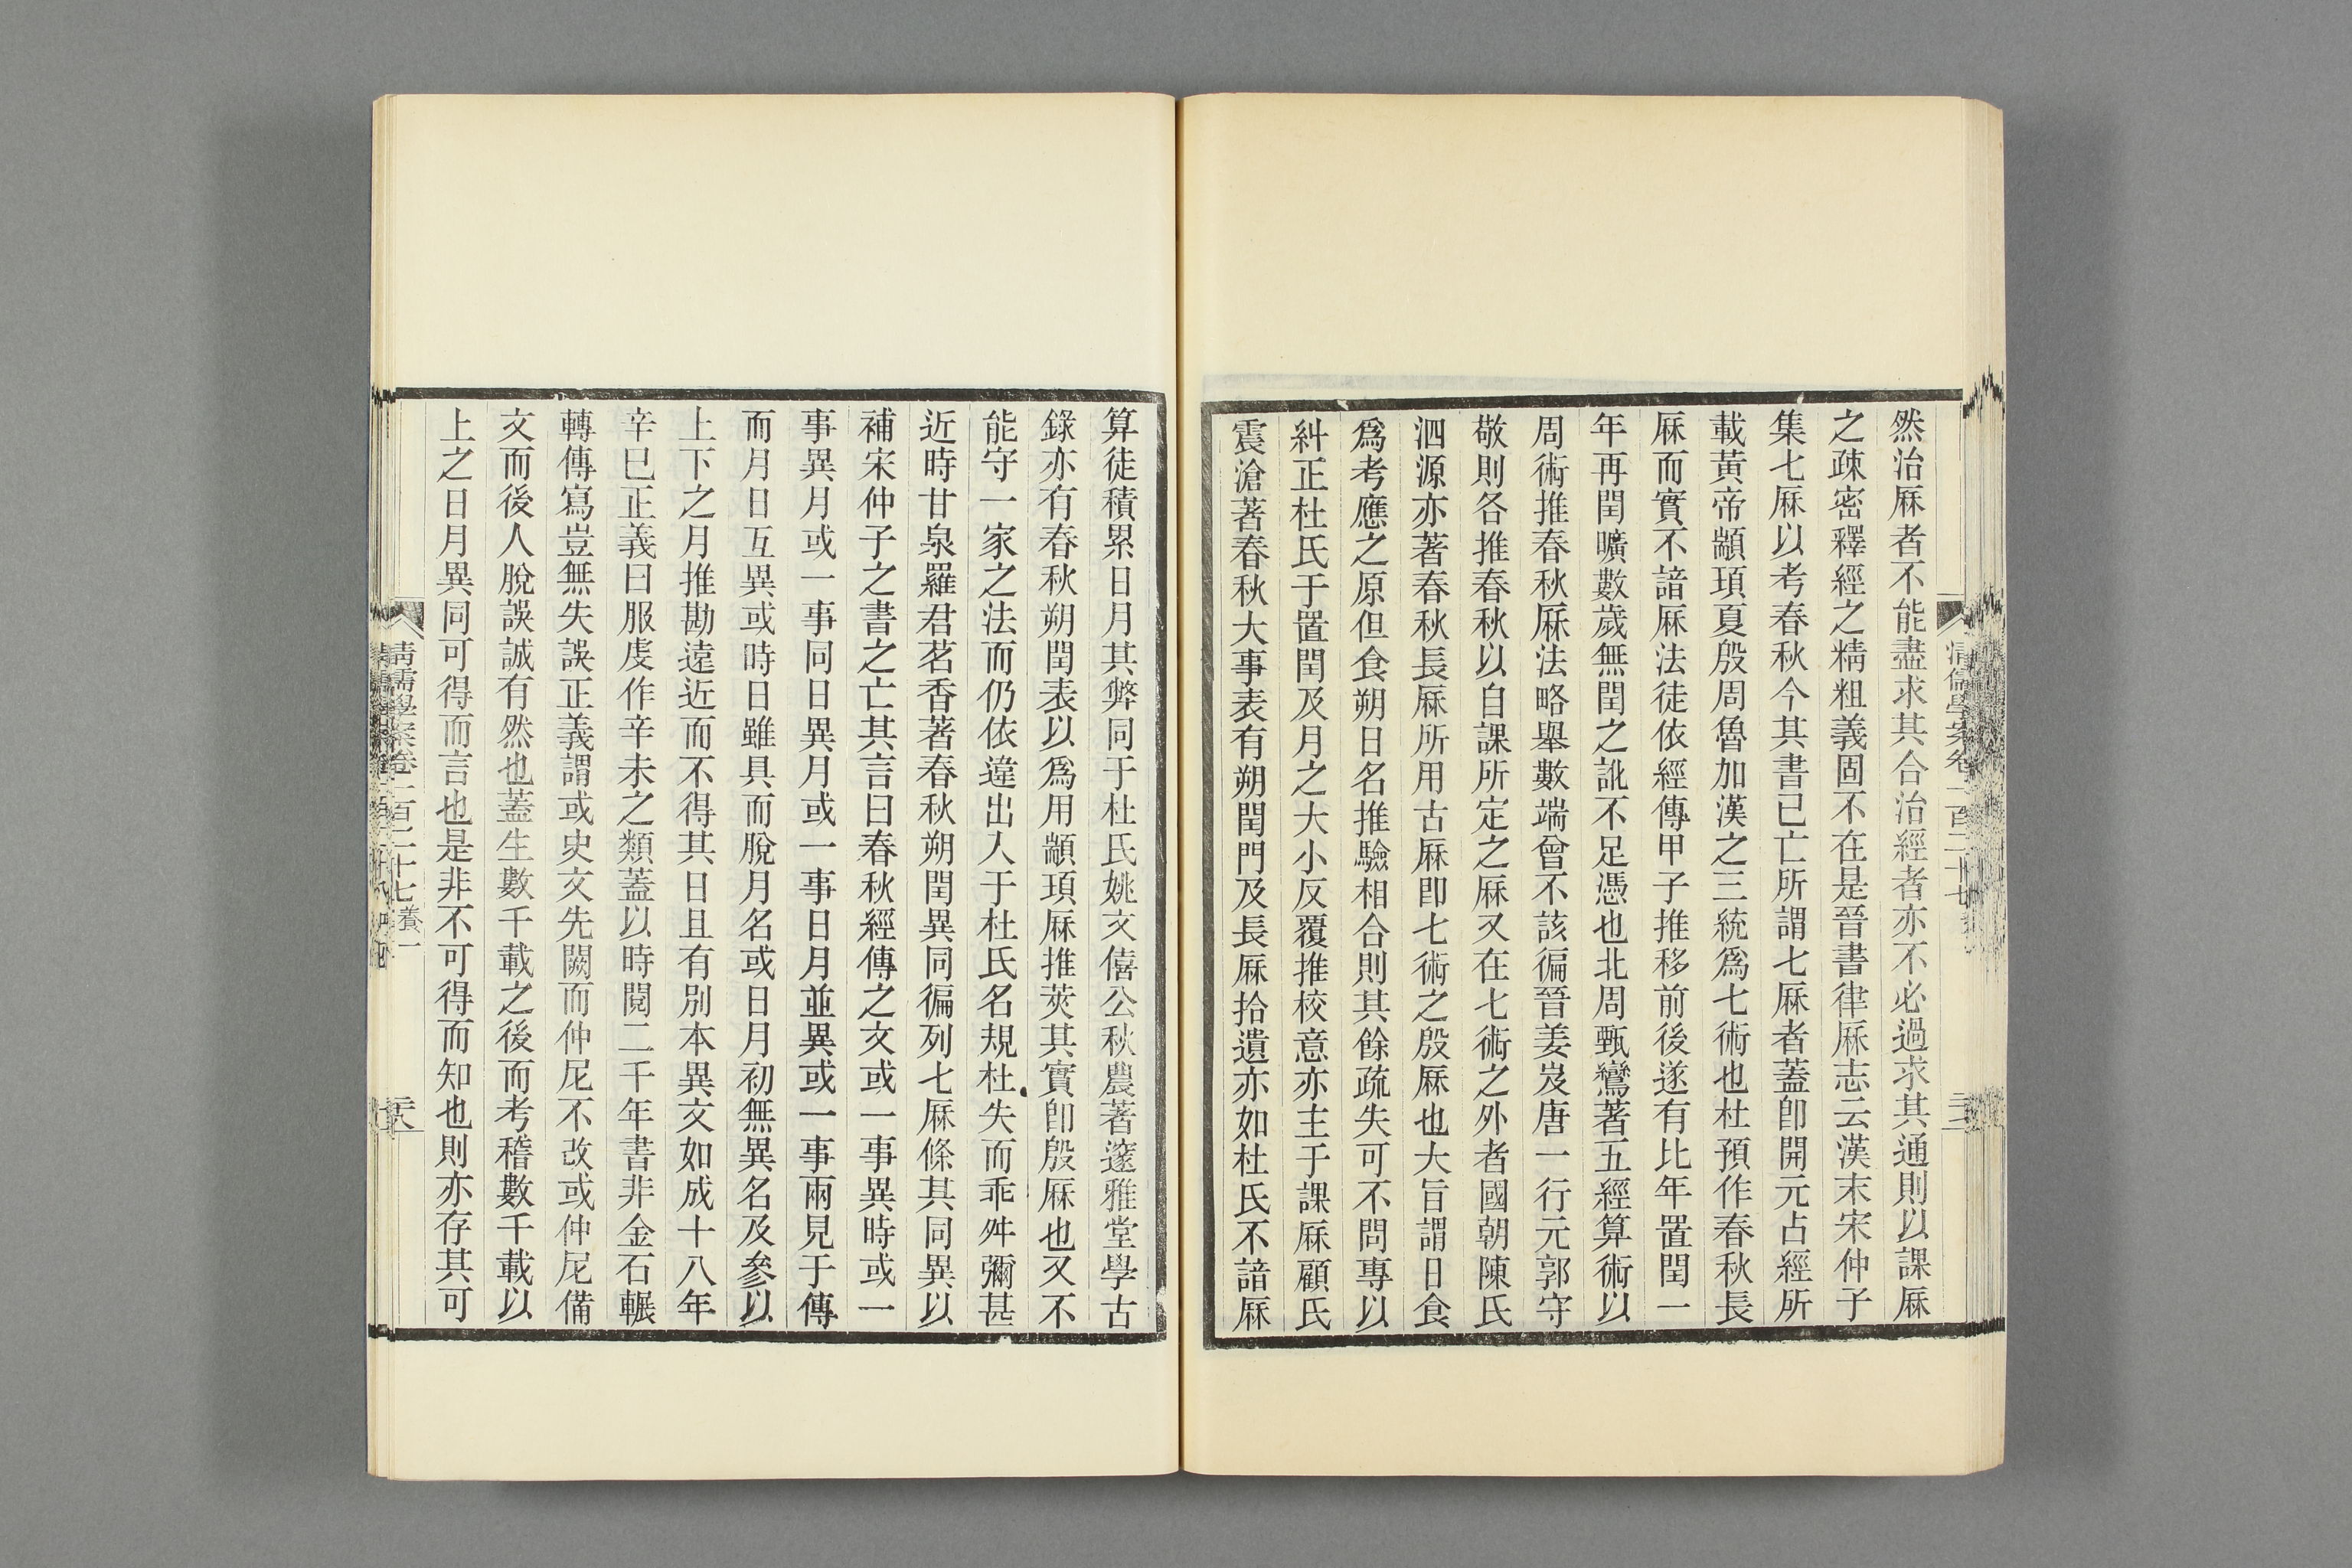 然治厤者不能盡求其合治經者亦不必過求其通則以課厤
之疎密釋經之精粗義固不在是晉書律厤志云漢末宋仲子
集七厤以考春秋今其書已亡所謂七厤者蓋卽開元占經所
載黃帝顓頊夏殷周魯加漢之三統爲七術也杜預作春秋長
厤而實不諳厤法徒依經傳甲子推移前後遂有比年置閏一
年再閏曠數歲無閏之訛不足憑也北周甄鸞著五經算術以
周術推春秋厤法略舉數端曾不該徧晉姜岌唐一行元郭守
敬則各推春秋以自課所定之厤又在七術之外者國朝陳氏
泗源亦著春秋長厤所用古厤卽七術之殷厤也大旨謂日食
爲考應之原但食朔日名推驗相合則其餘疏失可不問專以
糾正杜氏于置閏及月之大小反覆推校意亦主于課厤顧氏
震滄著春秋大事表有朔閏門及長厤拾遺亦如杜氏不諳厤
算徒積累日月其弊同于杜氏姚文僖公秋農著邃雅堂學古
錄亦有春秋朔閏表以爲用顓頊厤推莢其實卽殷厤也又不
能守一家之法而仍依違出入于杜氏名規杜失而乖舛彌甚
近時甘泉羅君茗香著春秋朔閏異同徧列七厤條其同異以
補宋仲子之書之亡其言曰春秋經傳之文或一事異時或一
事異月或一事同日異月或一事日月並異或一事兩見于傳
而月日互異或時日雖具而脫月名或日月初無異名及參以
上下之月推勘遠近而不得其日且有別本異文如成十八年
辛巳正義曰服虔作辛未之類蓋以時閱二千年書非金石輾
轉傳寫豈無失誤正義謂或史文先闕而仲尼不改或仲尼備
文而後人脫誤誠有然也蓋生數千載之後而考稽數千載以
上之日月異同可得而言也是非不可得而知也則亦存其可
清儒學案卷一百二十七